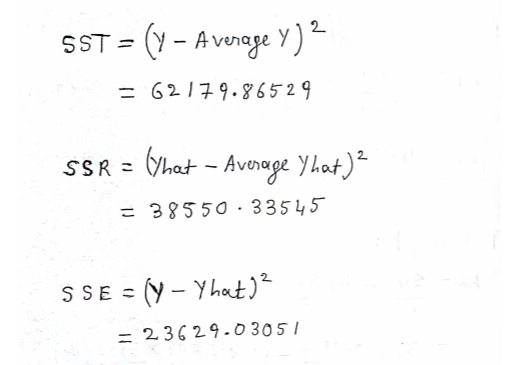 SST = (Y - Average Y)²
= 62179.86529
SSR = (Yhat - Average Yhat)²
= 38550.33545
SSE = (Y - Yhat)²
= 23629.03051